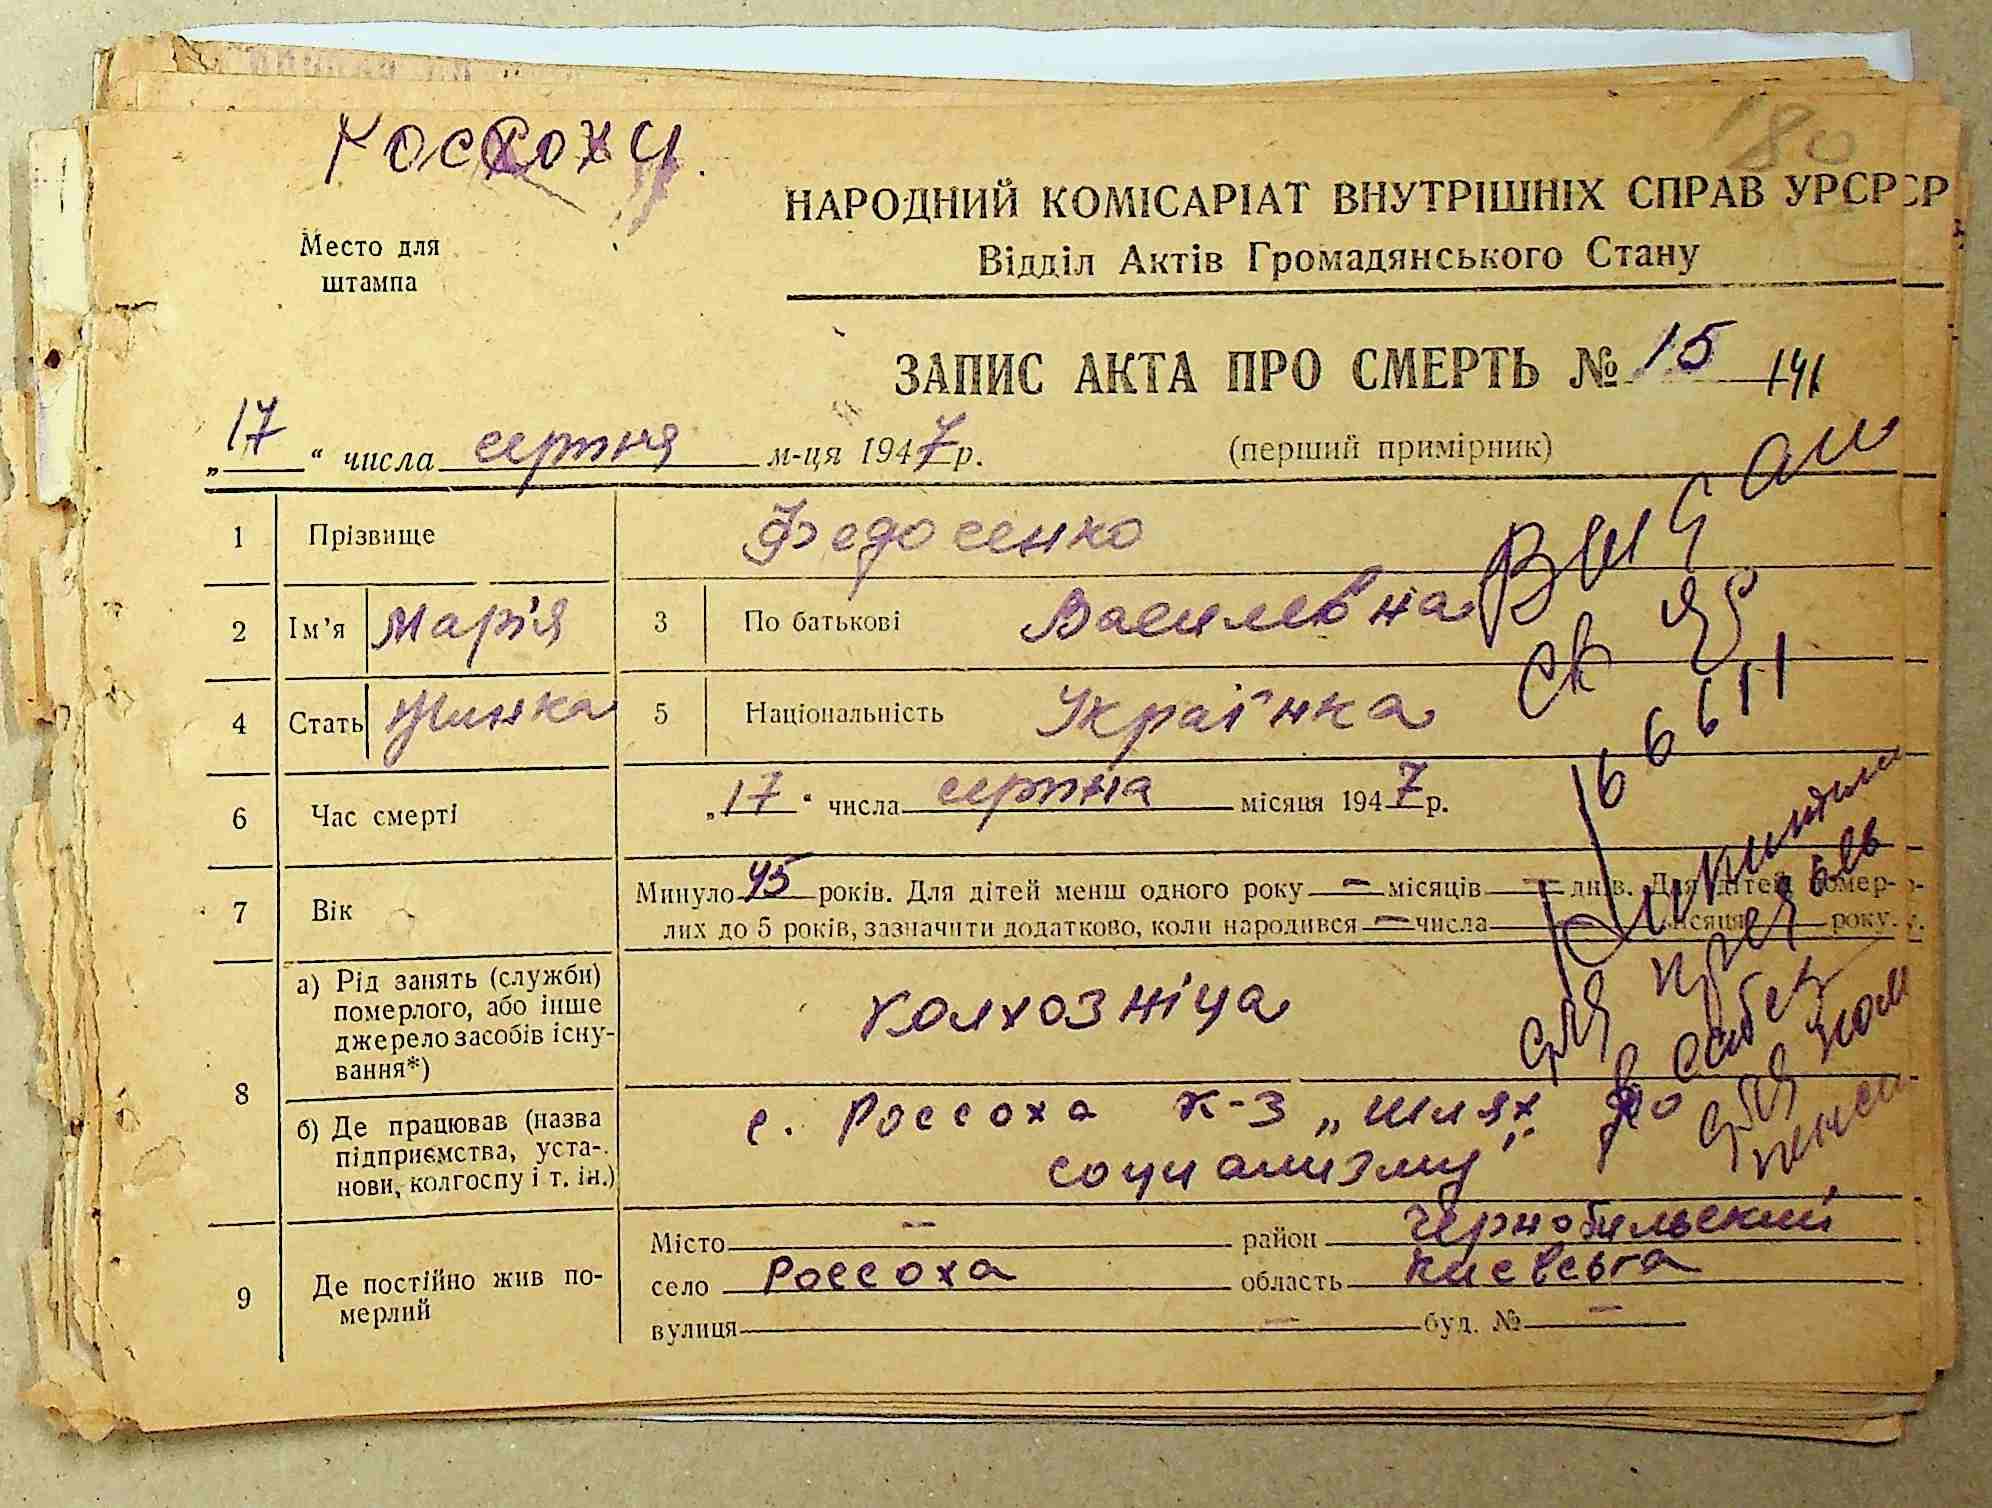 180
НАРОДНИЙ КОМІСАРІАТ ВНУТРІШНІХ СПРАВ УРСР
Место для
штампа
Відділ Актів Громадянського Стану
ЗАПИС АКТА ПРО СМЕРТЬ № 15 141
„17“ числа серпня м-ця 1947 р. (перший примірник)
1 Прізвище Федосенко
2 Ім'я Марія 3 По батькові Василевна
4 Стать Жинка 5 Національність Українка
6 Час смерті „17“ числа серпна місяця 1947 р.
7 Вік Минуло 45 років. Для дітей менш одного року — місяців — днів. Для дітей помер-
лих до 5 років, зазначити додатково, коли народився — числа місяця року.
8 а) Рід занять (служби)
померлого, або інше
джерело засобів існу-
вання*)
колхозніца
б) Де працював (назва
підприємства, уста-
нови, колгоспу і т. ін.)
с. Россоха к-з „шлях до
социализму".
9 Де постійно жив по-
мерлий
Місто — район Чернобильский
село Россоха область Киевська
вулиця — буд. № —